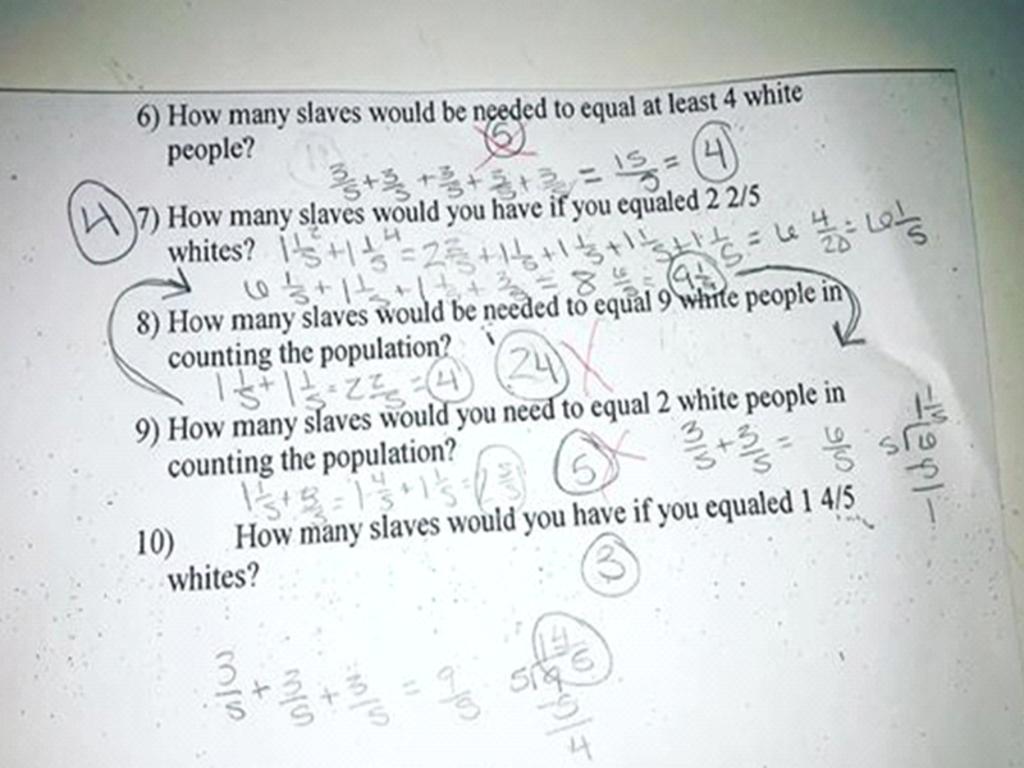 6) How many slaves would be needed to equal at least 4 white
people?
5
3/5 + 3/5 + 3/5 + 3/5 + 3/5 = 15/5 = 4
4
7) How many slaves would you have if you equaled 2 2/5
whites?
1 1/5 + 1 1/5 = 2 2/5 + 1 1/5 + 1 1/5 + 1 1/5 + 1 1/5 = 6 4/20 = 6 1/5
6 1/5 + 1 1/5 + 1
8) How many slaves would be needed to equal 9 white people in
counting the population?
24
1 1/5 + 1 1/5 = 2 2/5 = 4
9) How many slaves would you need to equal 2 white people in
counting the population?
5
3/5 + 3/5 = 6/5
1 1/5
5 6
5
1
1 1/5 + 3/5 = 1 4/5 + 1 1/5 =
10) How many slaves would you have if you equaled 1 4/5
whites?
3
3/5 + 3/5 + 3/5 = 9/5
1 4/5
5 9
-5
4